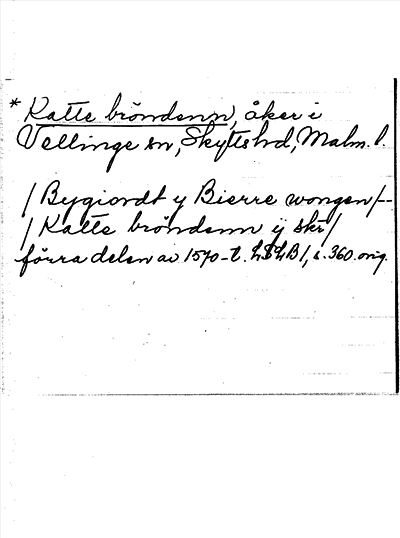 * Katte bröndenn, åker i
Vellinge sn, Skytts hd, Malm. l.
/ Bygiordt y Bierre wongen /--
/ Katte bröndenn ij skr /
förra delen av 1570-t. LSLB 1, s. 360. orig.